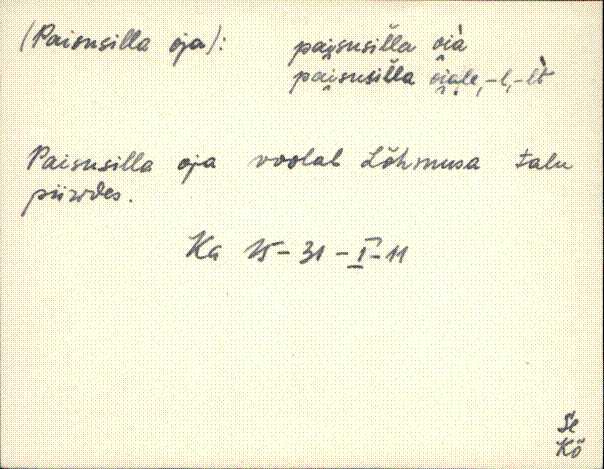 (Paisusilla oja): pai̯susil̆la oi̯à
pai̯susil̆la oi̯ale, -l, -lt
Paisusilla oja voolab Lõhmusa talu
piirides.
Ka 15-31-I-11
Se
Kö